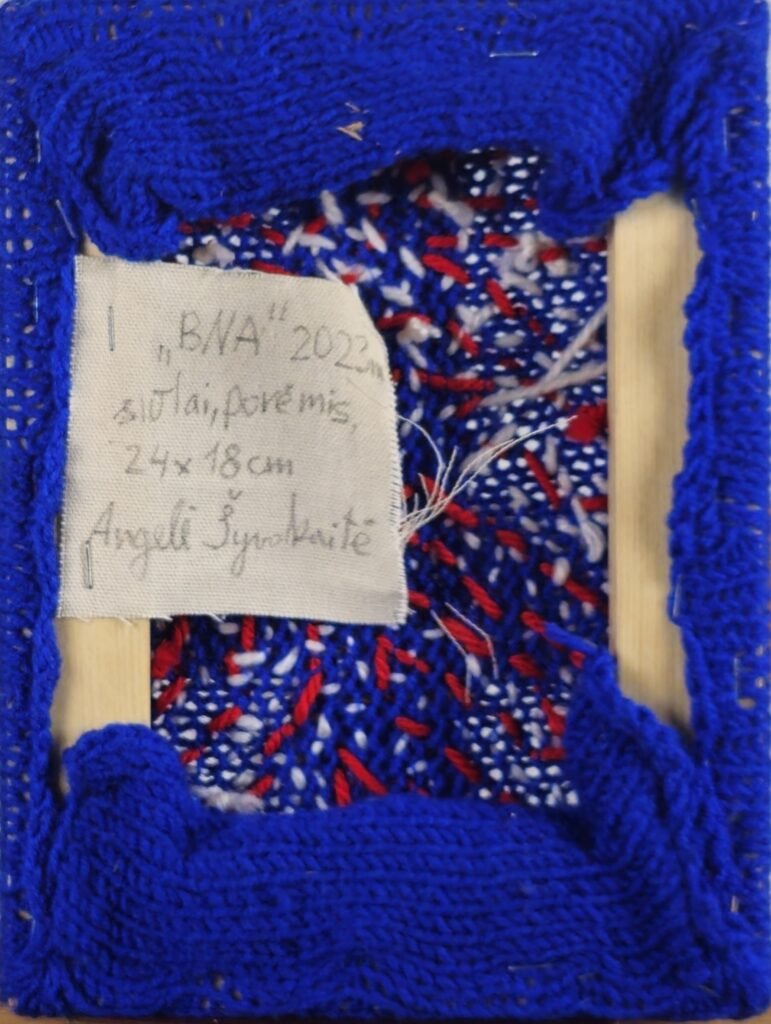 „BNA“ 2023m
siūlai, porėmis,
24x18cm
Angelė Šyvokaitė